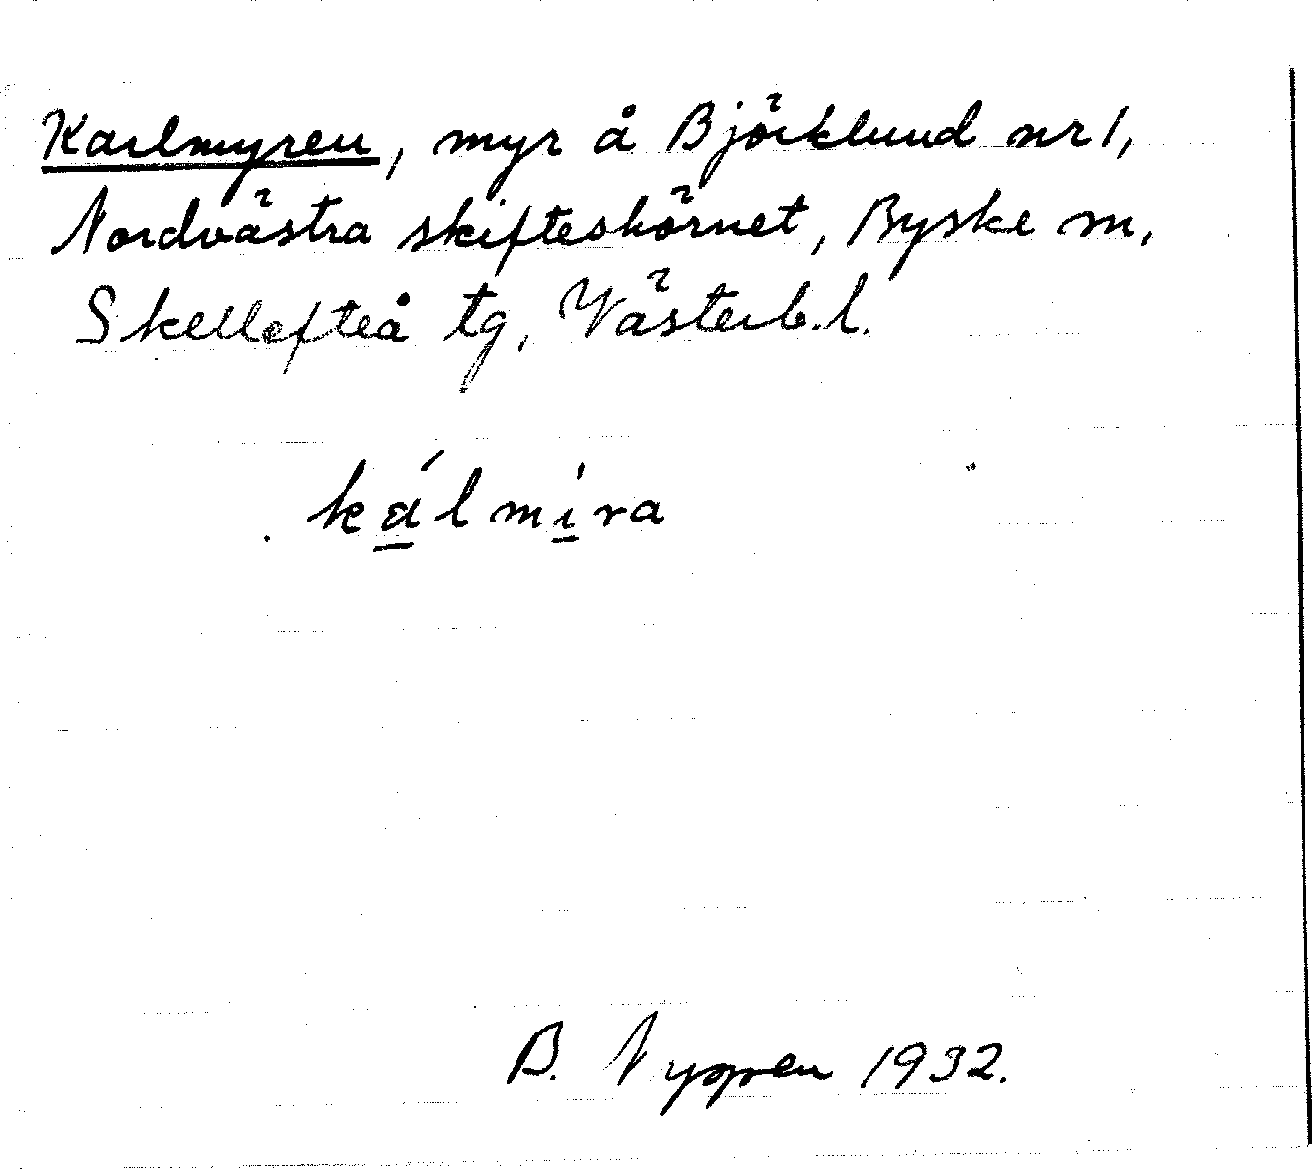 Karlmyren, myr å Björklund nr 1,
Nordvästra skifteshörnet, Byske sn,
Skellefteå tg, Västerb.l.
kálmíra
B. Nyppen 1932.